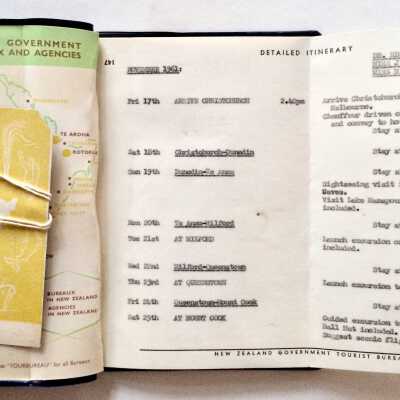 GOVERNMENT
K AND AGENCIES
TE AROHA
ROTORUA
BUREAUX
IN NEW ZEALAND
AGENCIES
IN NEW ZEALAND
"TOURBUREAU" for all Bureaux
147
DETAILED ITINERARY
NOVEMBER 1961:
Fri 17th ARRIVE CHRISTCHURCH 2.40pm
Sat 18th Christchurch-Dunedin
Sun 19th Dunedin-Te Anau
Mon 20th Te Anau-Milford
Tue 21st AT MILFORD
Wed 22nd Milford-Queenstown
Thu 23rd AT QUEENSTOWN
Fri 24th Queenstown-Mount Cook
Sat 25th AT MOUNT COOK
Arrive Christchurch
Melbourne.
Chauffeur driven c
and convey to ho
Stay a
Stay a
Sightseeing visit
Visit Lake Manapou
included.
Stay a
Launch excursion o
included.
Stay a
Launch excursion to
included.
Stay a
Guided excursion to
Ball Hut included.
Suggest scenic flig
NEW ZEALAND GOVERNMENT TOURIST BUREA